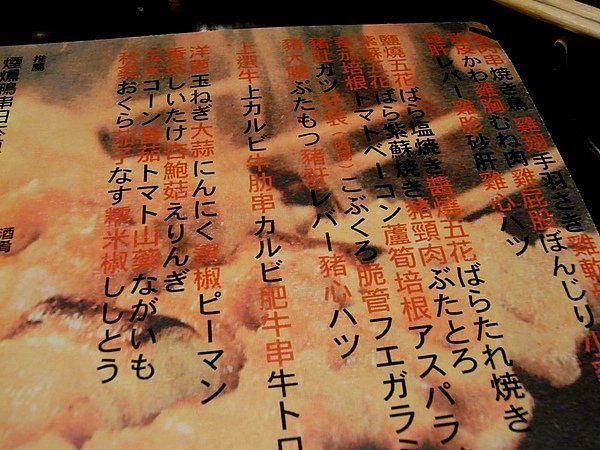 肉串焼き鳥 雞翅手羽さき 雞軟
雞皮かわ 雞胸むね肉 雞屁股ぼんじり 小
雞肝レバー 雞胗砂肝 雞心ハツ
鹽燒五花ばら塩焼き 醬燒五花ばらたれ焼き
紫蘇五花ばら紫蘇焼き 豬頸肉ぶたとろ
番茄培根トマトベーコン 蘆筍培根アスパラ
豬肚ガツ こぶくろ 脆管フエガラミ
豬大腸ぶたもつ 豬肝レバー 豬心ハツ
上選牛上カルビ 牛肋串カルビ 肥牛串牛トロ
洋蔥玉ねぎ 大蒜にんにく 青椒ピーマン
香菇しいたけ 杏鮑菇えりんぎ
コーン 番茄トマト 山藥ながいも
秋葵おくら 茄子なす 糯米椒ししとう
推薦
煙燻鴨串
酒肴